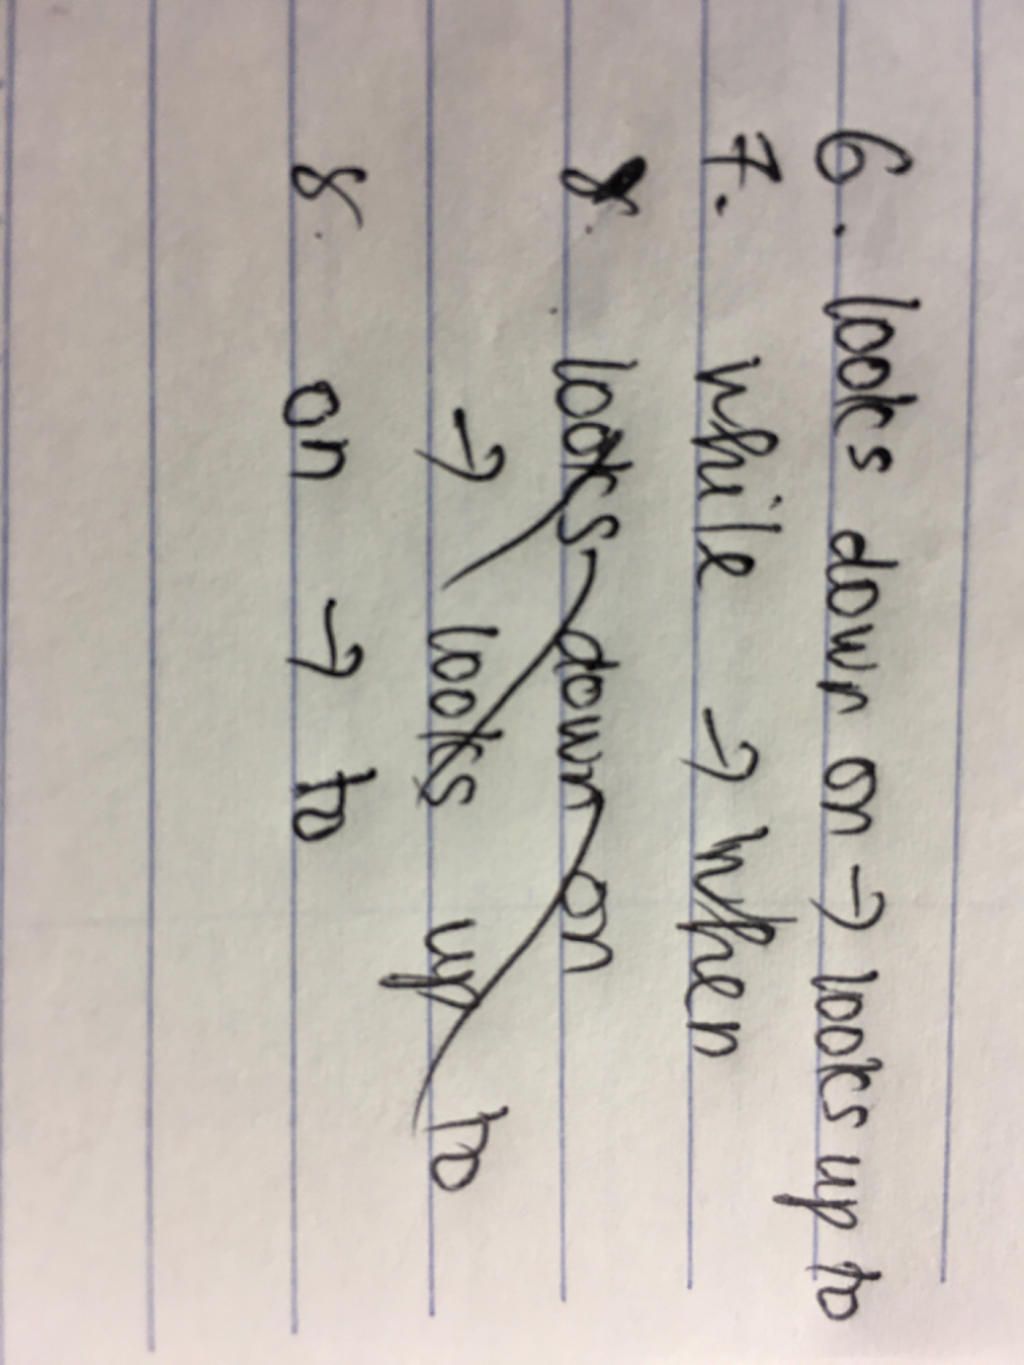 6. looks down on → looks up to
7. while → when
8. looks down on
→ looks up to
8. on → to